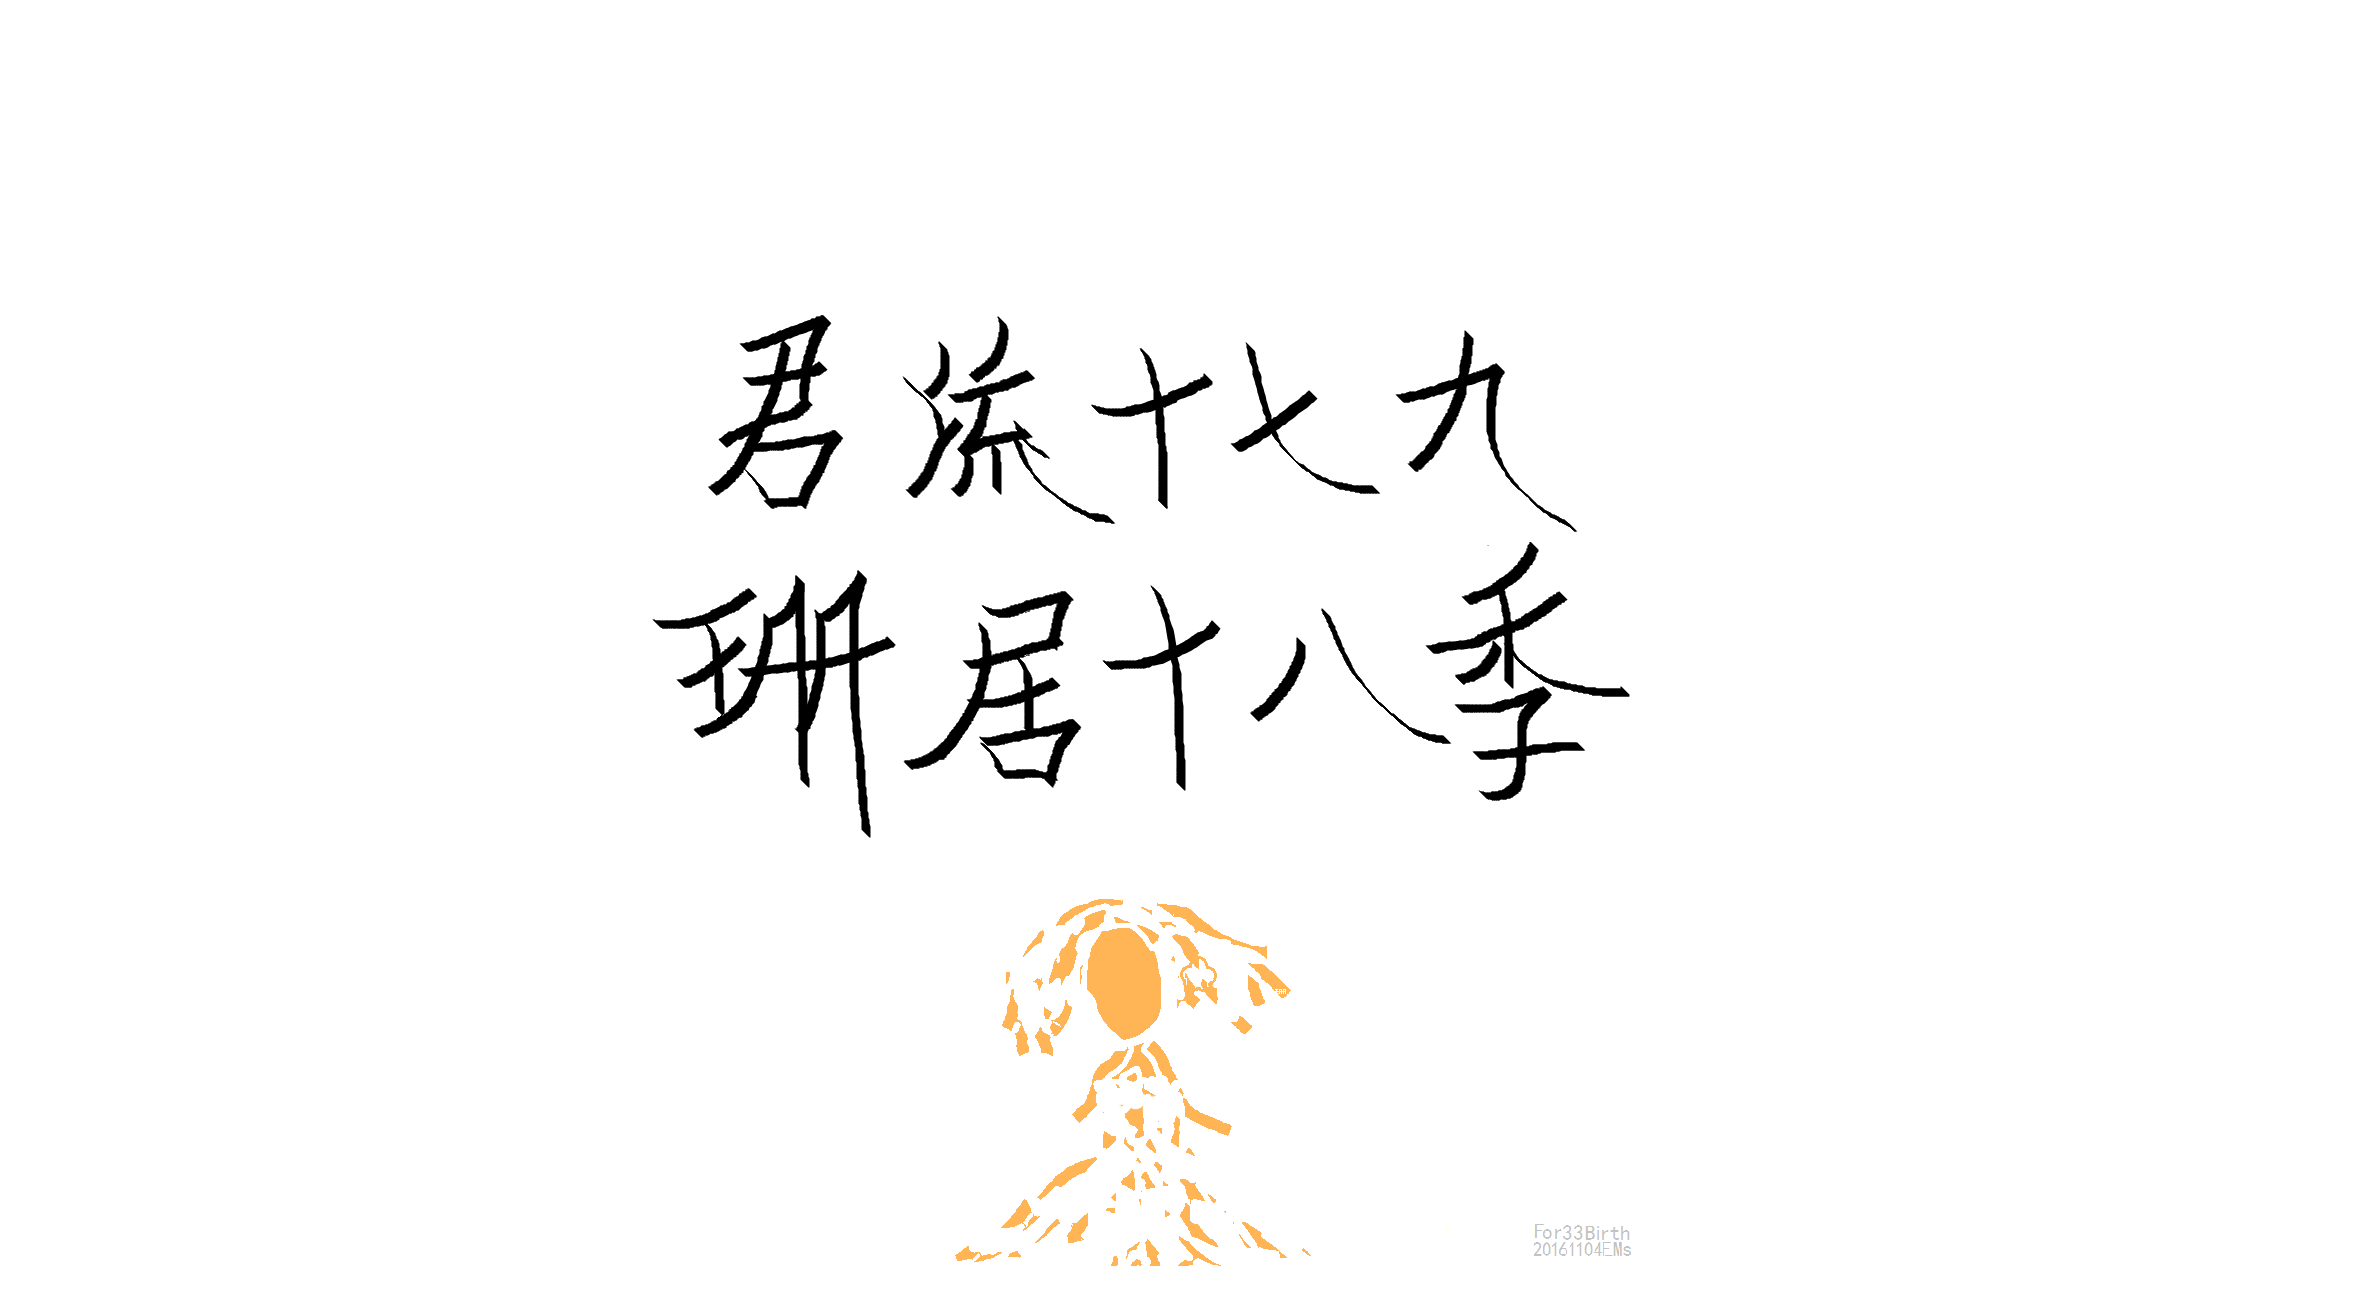 君流十七九
珊居十八季
For33Birth
20161104EMs